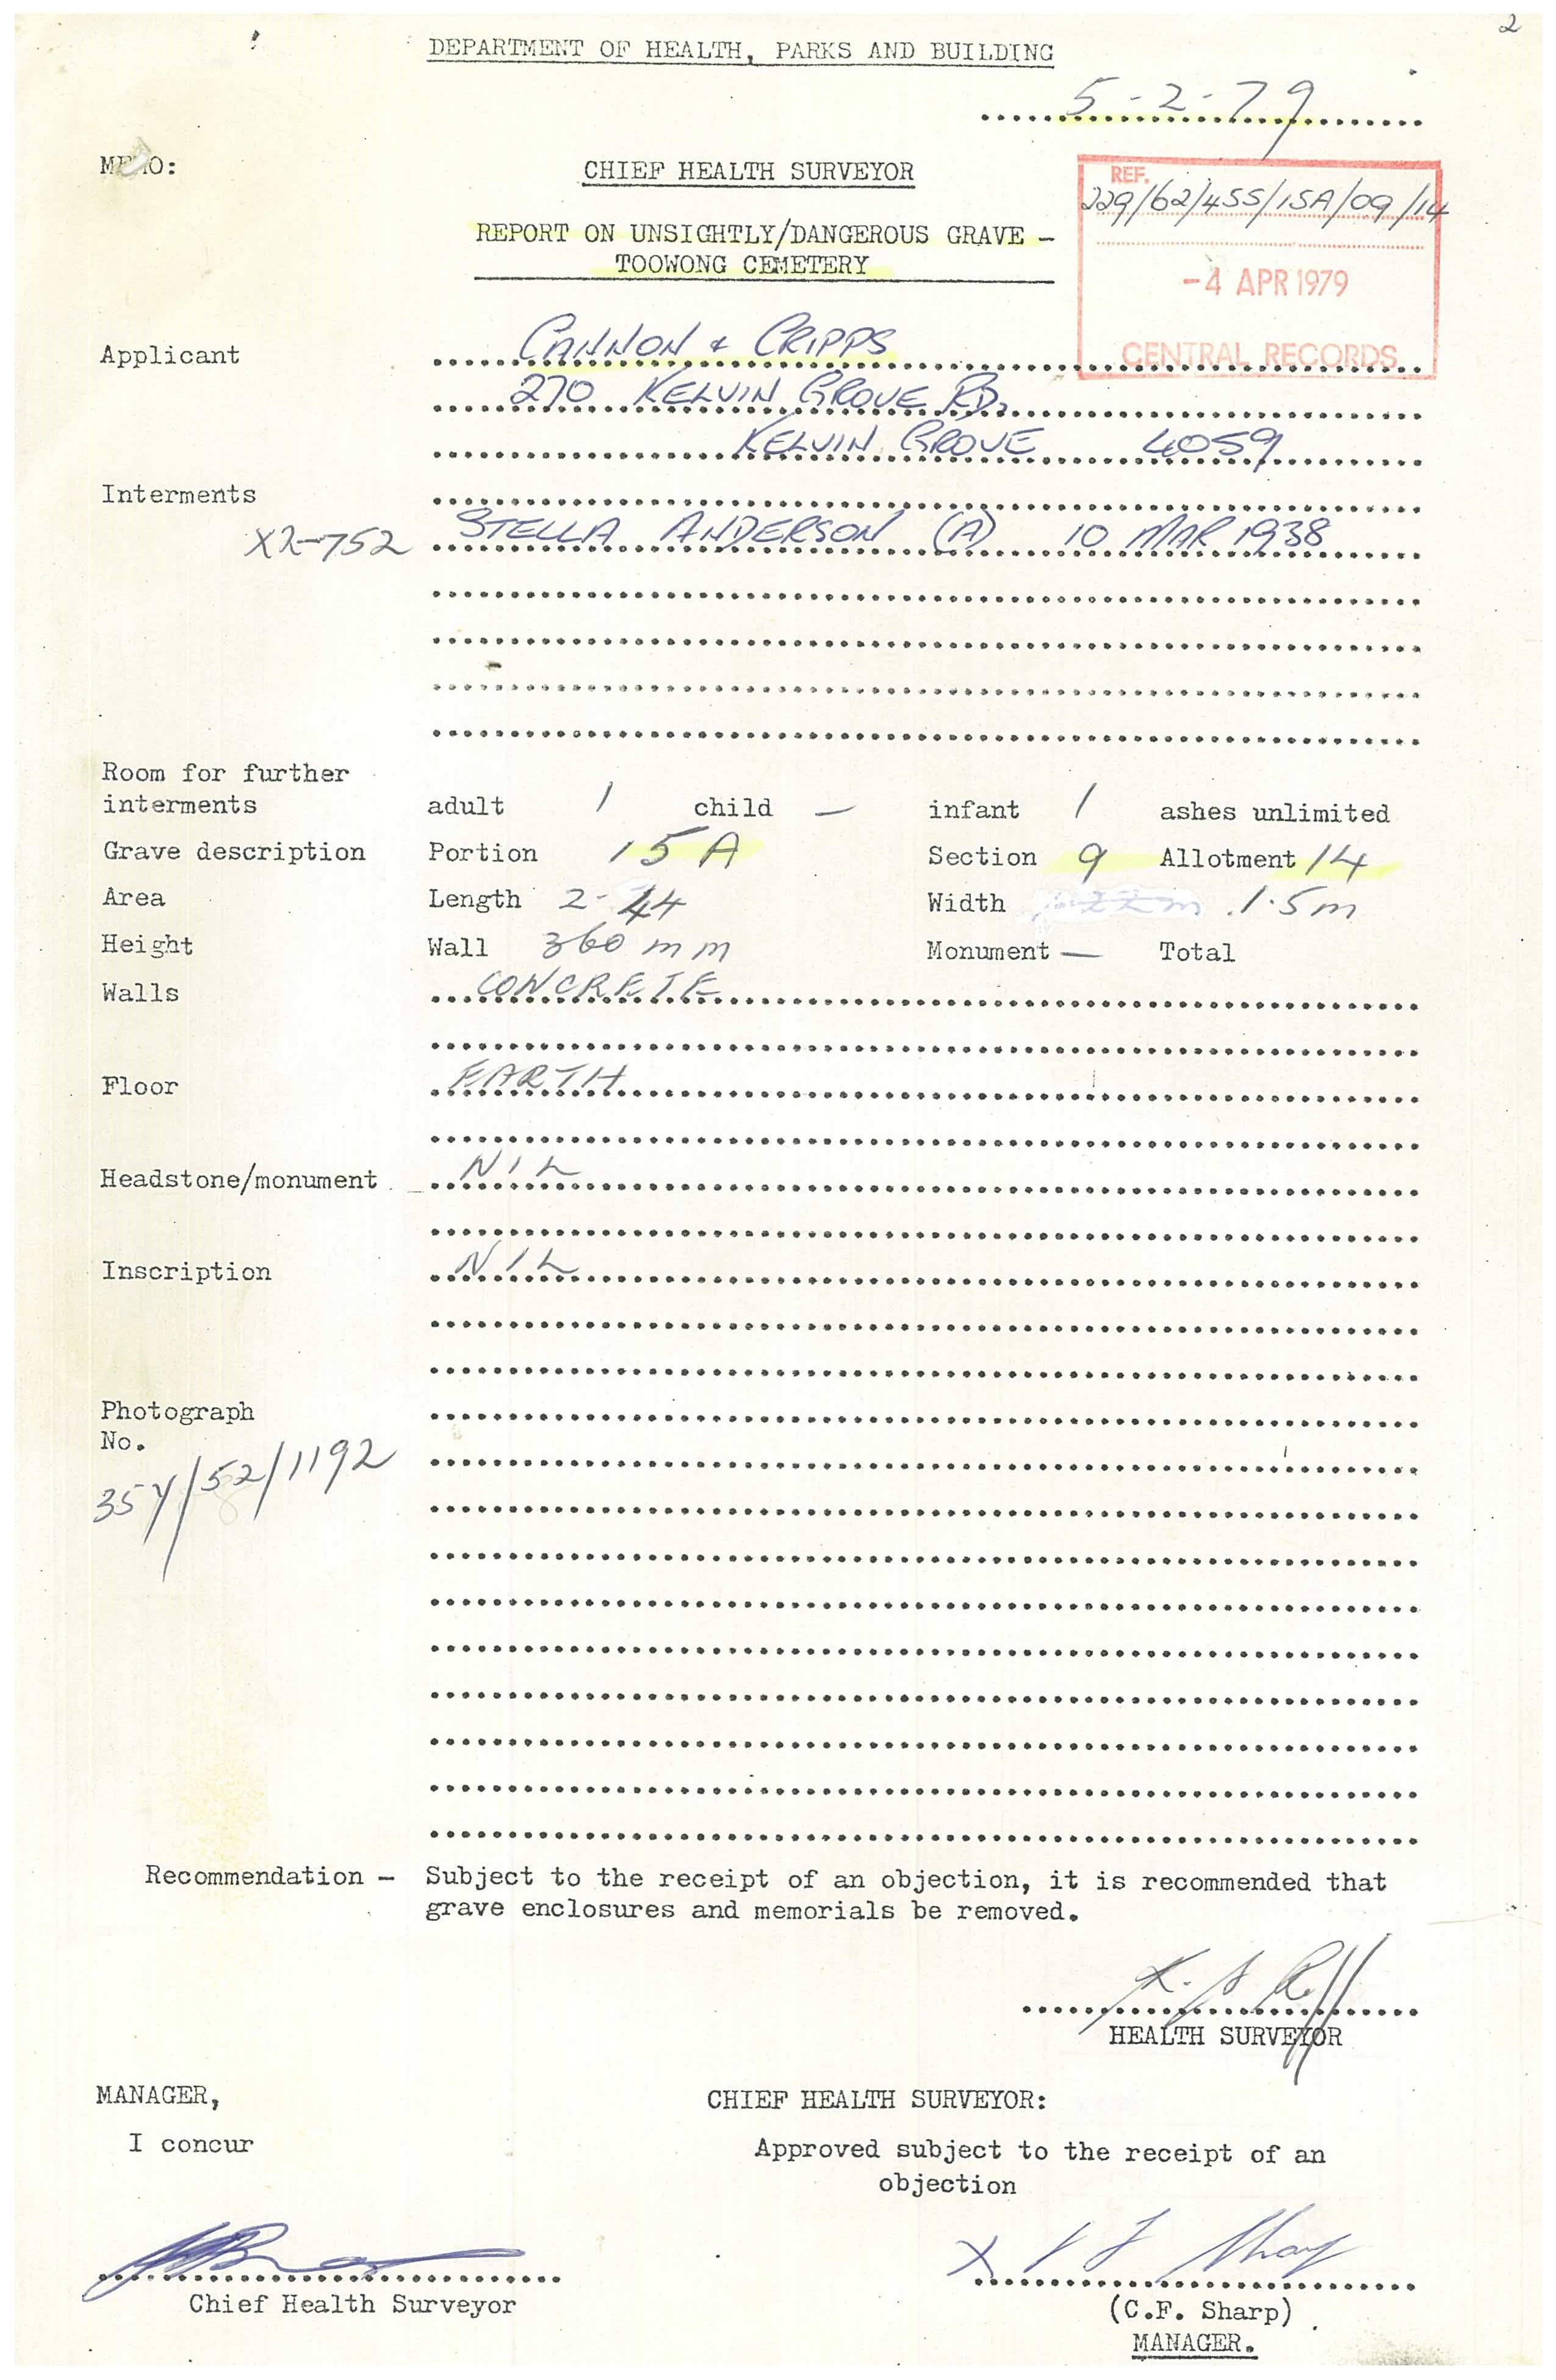 2
DEPARTMENT OF HEALTH, PARKS AND BUILDING
5-2-79
MEMO:
CHIEF HEALTH SURVEYOR
REF.
229/62/455/15A/09/14
REPORT ON UNSIGHTLY/DANGEROUS GRAVE -
TOOWONG CEMETERY
-4 APR 1979
CENTRAL RECORDS
Applicant CANNON & CRIPPS
270 KELVIN GROVE RD,
KELVIN GROVE 4059
Interments
X2-752 STELLA ANDERSON (A) 10 MAR 1938
Room for further
interments adult 1 child - infant 1 ashes unlimited
Grave description Portion 15A Section 9 Allotment 14
Area Length 2-44 Width 1.5m
Height Wall 360 mm Monument - Total
Walls CONCRETE
Floor EARTH
Headstone/monument NIL
Inscription NIL
Photograph
No.
357/52/1192
Recommendation - Subject to the receipt of an objection, it is recommended that
grave enclosures and memorials be removed.
HEALTH SURVEYOR
MANAGER, CHIEF HEALTH SURVEYOR:
I concur Approved subject to the receipt of an
objection
Chief Health Surveyor
(C.F. Sharp)
MANAGER.